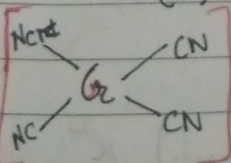 NC CN
Cr
NC CN